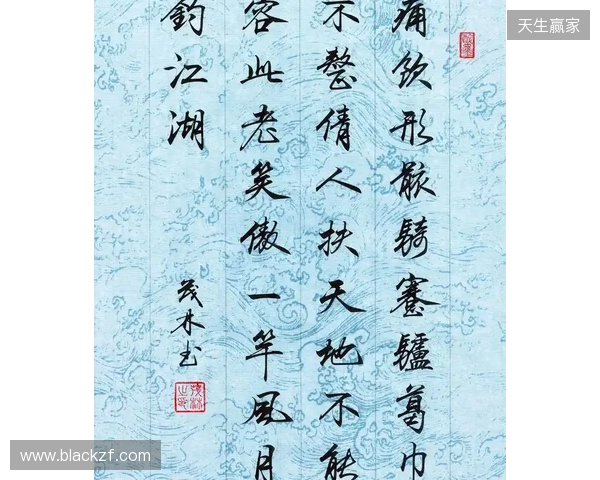 天生赢家
痛饮形骸騎蹇驢葛巾
不整倩人扶天地不能
容此老笑傲一竿風月
釣江湖
茂林书
www.blackzf.com